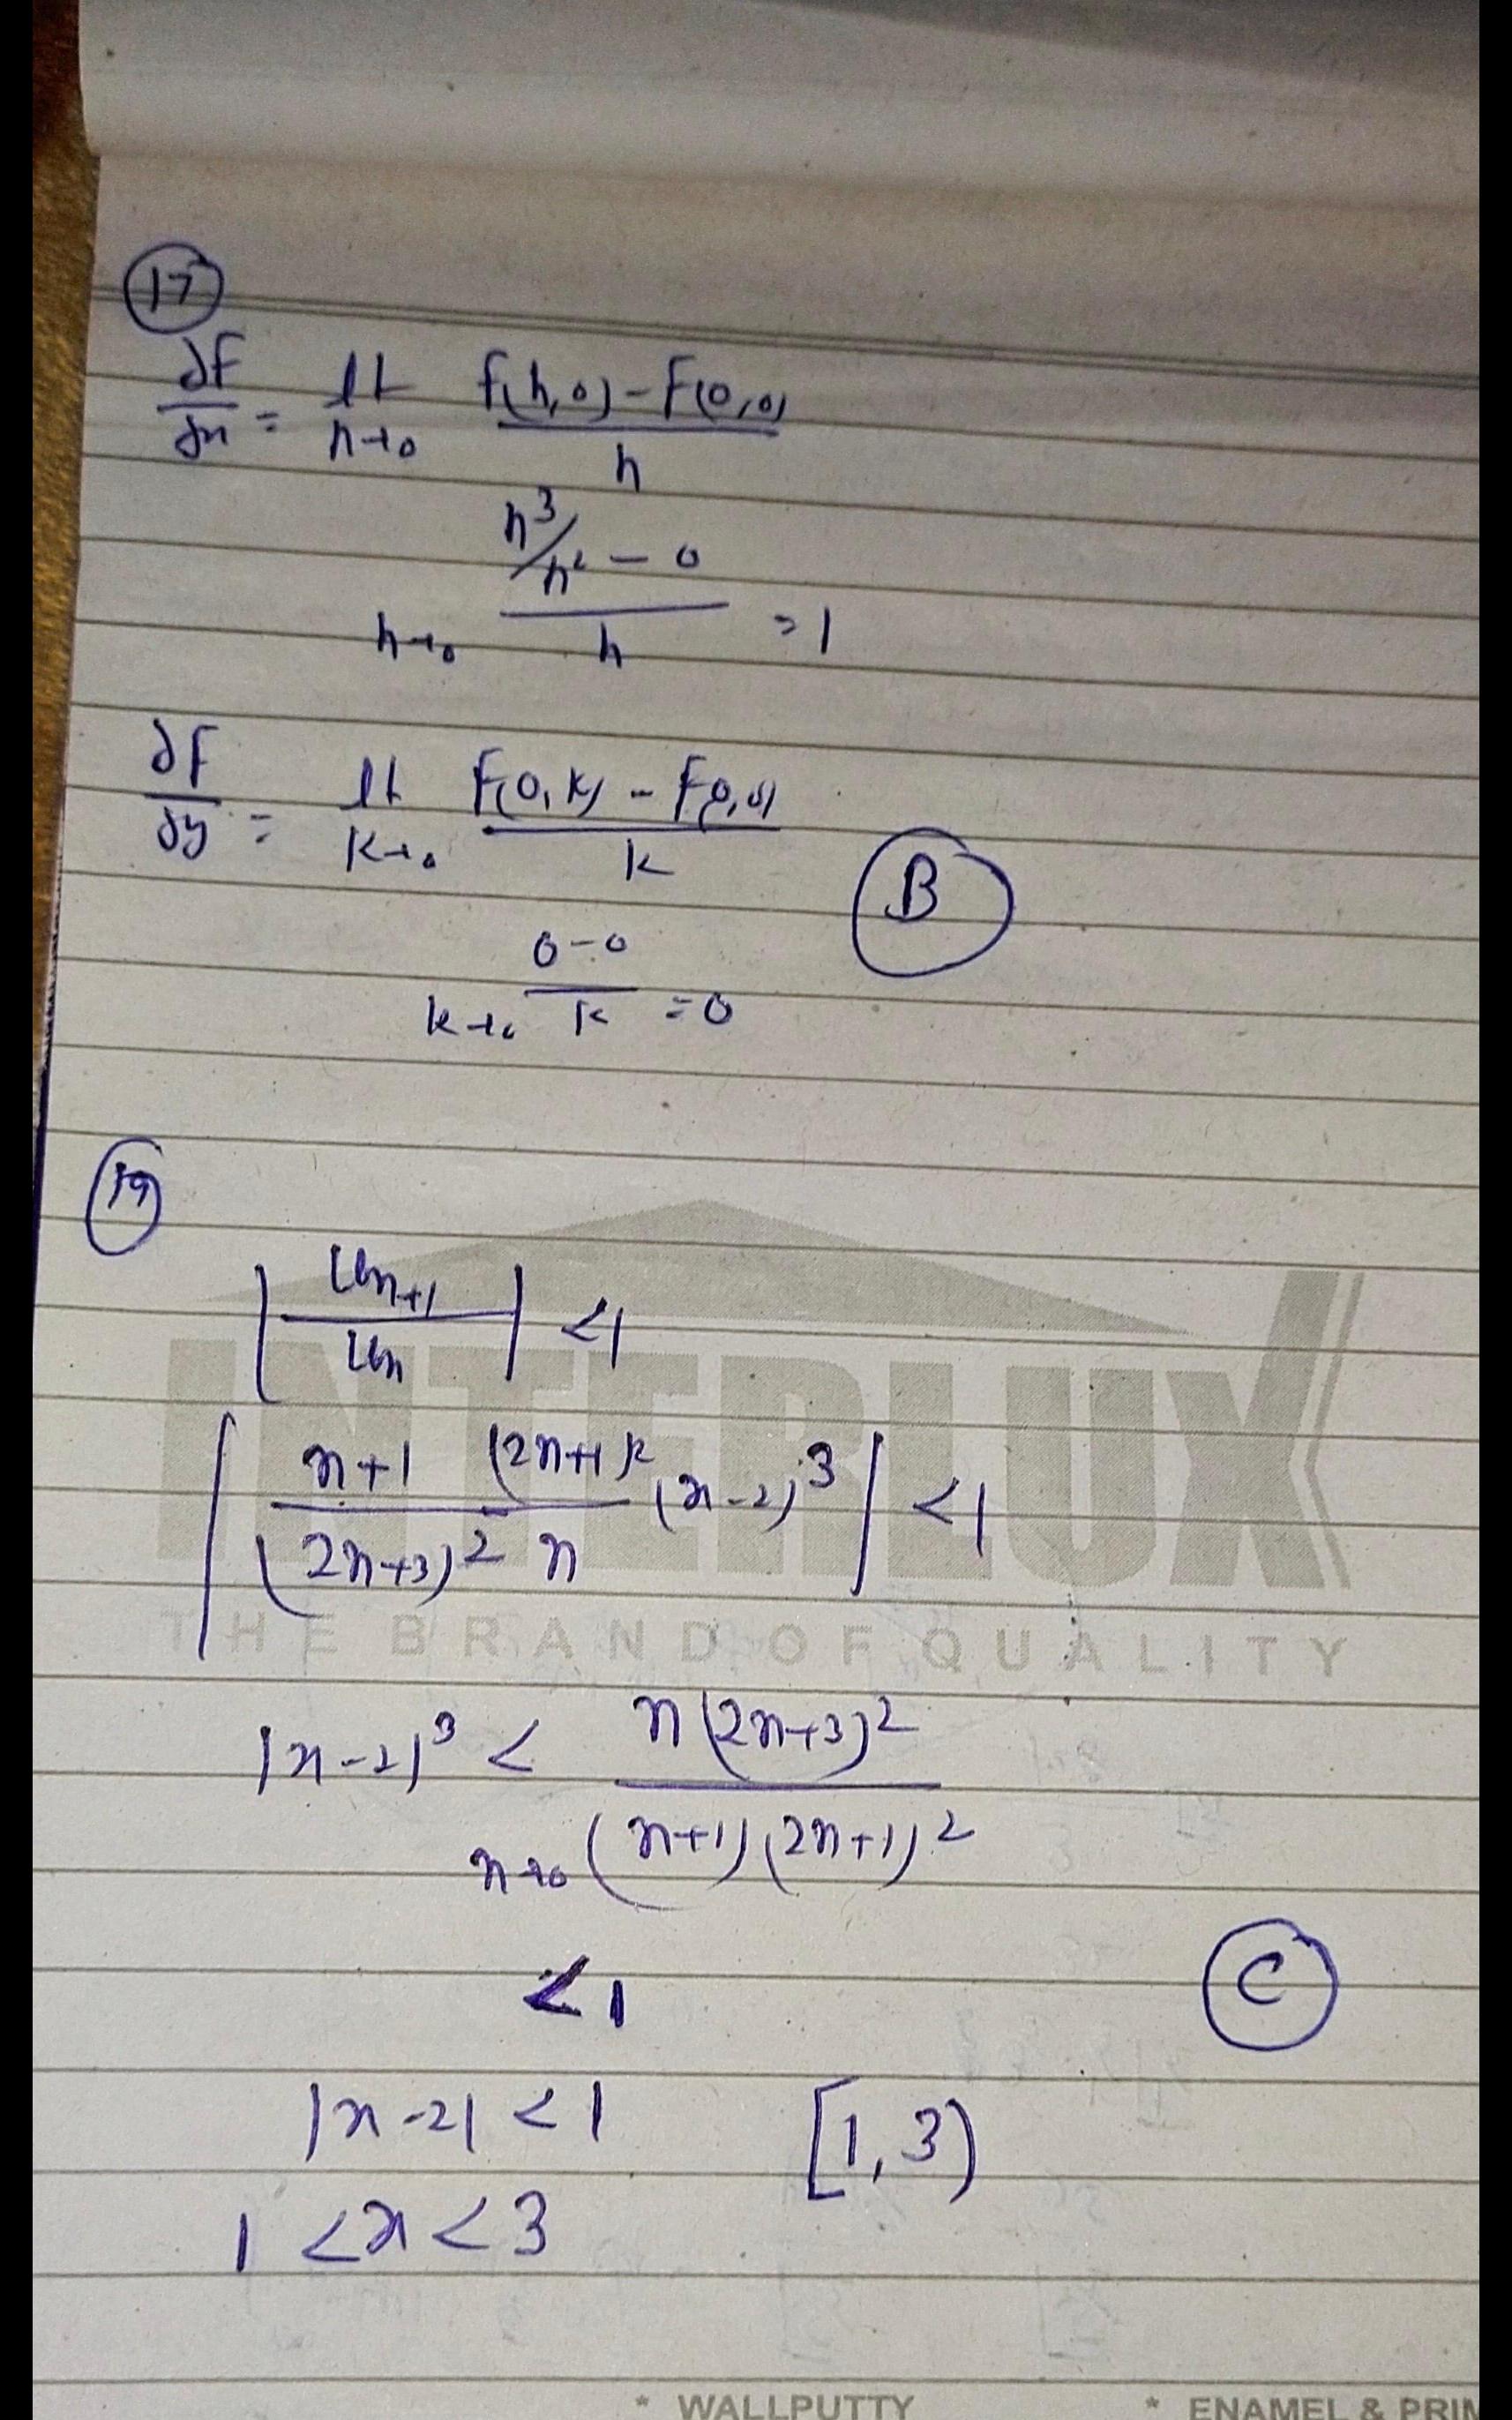 17
∂f/∂x = lt h→0 f(h,0) - f(0,0) / h
h→0 h³/h² - 0 / h = 1
∂f/∂y = lt k→0 f(0,k) - f(0,0) / k
B
k→0 0-0 / k = 0
19
|Un+1 / Un| < 1
|n+1 (2n+1)² / (2n+3)² n (x-2)³| < 1
INTERLUX
THE BRAND OF QUALITY
|x-2|³ < n(2n+3)² / n→∞ (n+1)(2n+1)²
< 1
C
|x-2| < 1 [1, 3)
1 < x < 3
* WALLPUTTY * ENAMEL & PRIM